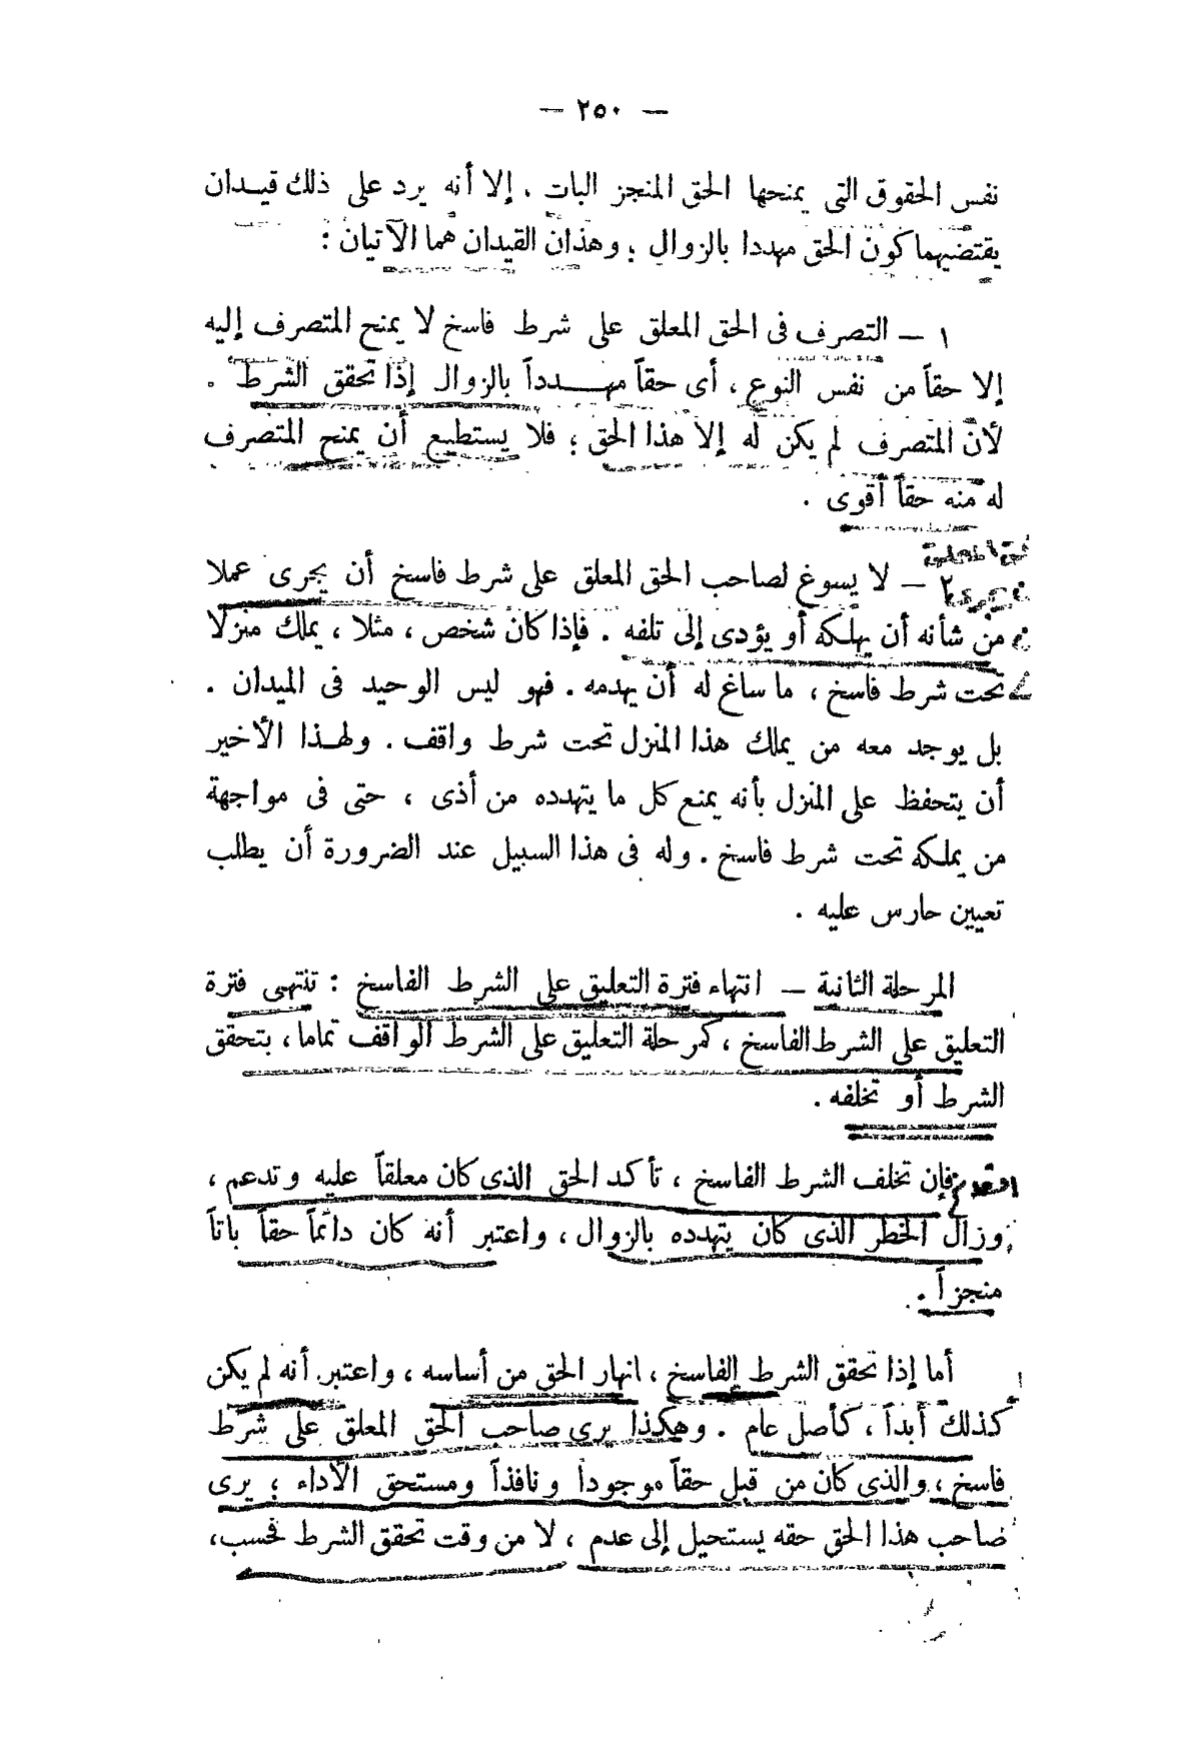 — ٢٥٠ —
نفس الحقوق التى يمنحها الحق المنجز البات . إلا أنه يرد على ذلك قيدان
يقتضيهما كون الحق مهددا بالزوال ؛ وهذان القيدان هما الآتيان :
١ — التصرف فى الحق المعلق على شرط فاسخ لا يمنح المتصرف إليه
إلا حقاً من نفس النوع ، أى حقاً مهدداً بالزوال إذا تحقق الشرط .
لأن المتصرف لم يكن له إلا هذا الحق ؛ فلا يستطيع أن يمنح المتصرف
له منه حقاً أقوى .
٢ — لا يسوغ لصاحب الحق المعلق على شرط فاسخ أن يجرى عملا
من شأنه أن يهلكه أو يؤدى إلى تلفه . فإذا كان شخص ، مثلا ، يملك منزلا
تحت شرط فاسخ ، ما ساغ له أن يهدمه . فهو ليس الوحيد فى الميدان .
بل يوجد معه من يملك هذا المنزل تحت شرط واقف . ولهذا الأخير
أن يتحفظ على المنزل بأنه يمنع كل ما يتهدده من أذى ، حتى فى مواجهة
من يملكه تحت شرط فاسخ . وله فى هذا السبيل عند الضرورة أن يطلب
تعيين حارس عليه .
المرحلة الثانية — انتهاء فترة التعليق على الشرط الفاسخ : تنتهى فترة
التعليق على الشرط الفاسخ ، كمرحلة التعليق على الشرط الواقف تماما ، بتحقق
الشرط أو تخلفه .
فإن تخلف الشرط الفاسخ ، تأكد الحق الذى كان معلقاً عليه وتدعم ،
وزال الخطر الذى كان يتهدده بالزوال ، واعتبر أنه كان دائماً حقاً باتاً
منجزاً .
أما إذا تحقق الشرط الفاسخ ، انهار الحق من أساسه ، واعتبر أنه لم يكن
كذلك أبداً ، كأصل عام . وهكذا يرى صاحب الحق المعلق على شرط
فاسخ ، والذى كان من قبل حقاً موجوداً ونافذاً ومستحق الأداء ؛ يرى
صاحب هذا الحق حقه يستحيل إلى عدم ، لا من وقت تحقق الشرط فحسب ،